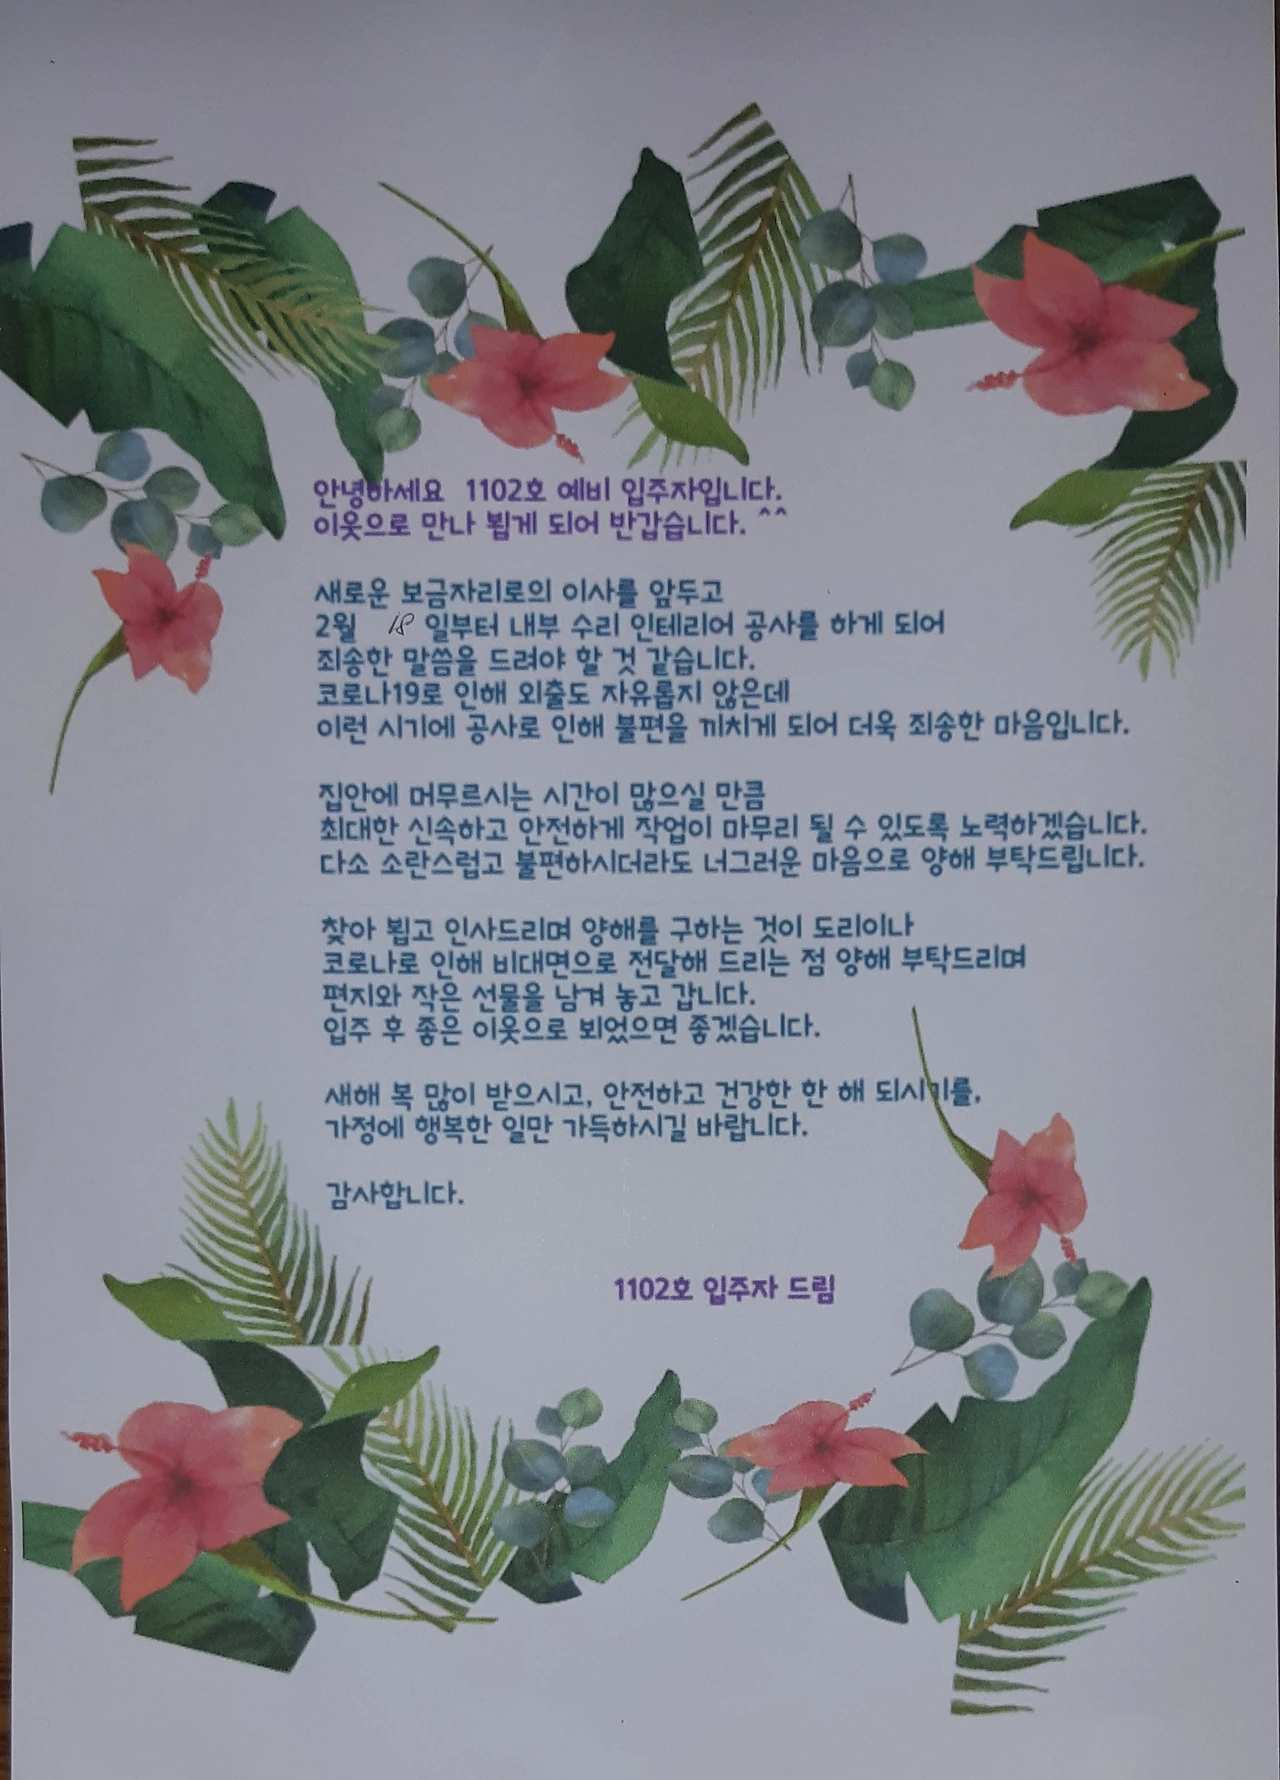 안녕하세요 1102호 예비 입주자입니다.
이웃으로 만나 뵙게 되어 반갑습니다. ^^
새로운 보금자리로의 이사를 앞두고
2월 18 일부터 내부 수리 인테리어 공사를 하게 되어
죄송한 말씀을 드려야 할 것 같습니다.
코로나19로 인해 외출도 자유롭지 않은데
이런 시기에 공사로 인해 불편을 끼치게 되어 더욱 죄송한 마음입니다.
집안에 머무르시는 시간이 많으실 만큼
최대한 신속하고 안전하게 작업이 마무리 될 수 있도록 노력하겠습니다.
다소 소란스럽고 불편하시더라도 너그러운 마음으로 양해 부탁드립니다.
찾아 뵙고 인사드리며 양해를 구하는 것이 도리이나
코로나로 인해 비대면으로 전달해 드리는 점 양해 부탁드리며
편지와 작은 선물을 남겨 놓고 갑니다.
입주 후 좋은 이웃으로 뵈었으면 좋겠습니다.
새해 복 많이 받으시고, 안전하고 건강한 한 해 되시기를,
가정에 행복한 일만 가득하시길 바랍니다.
감사합니다.
1102호 입주자 드림